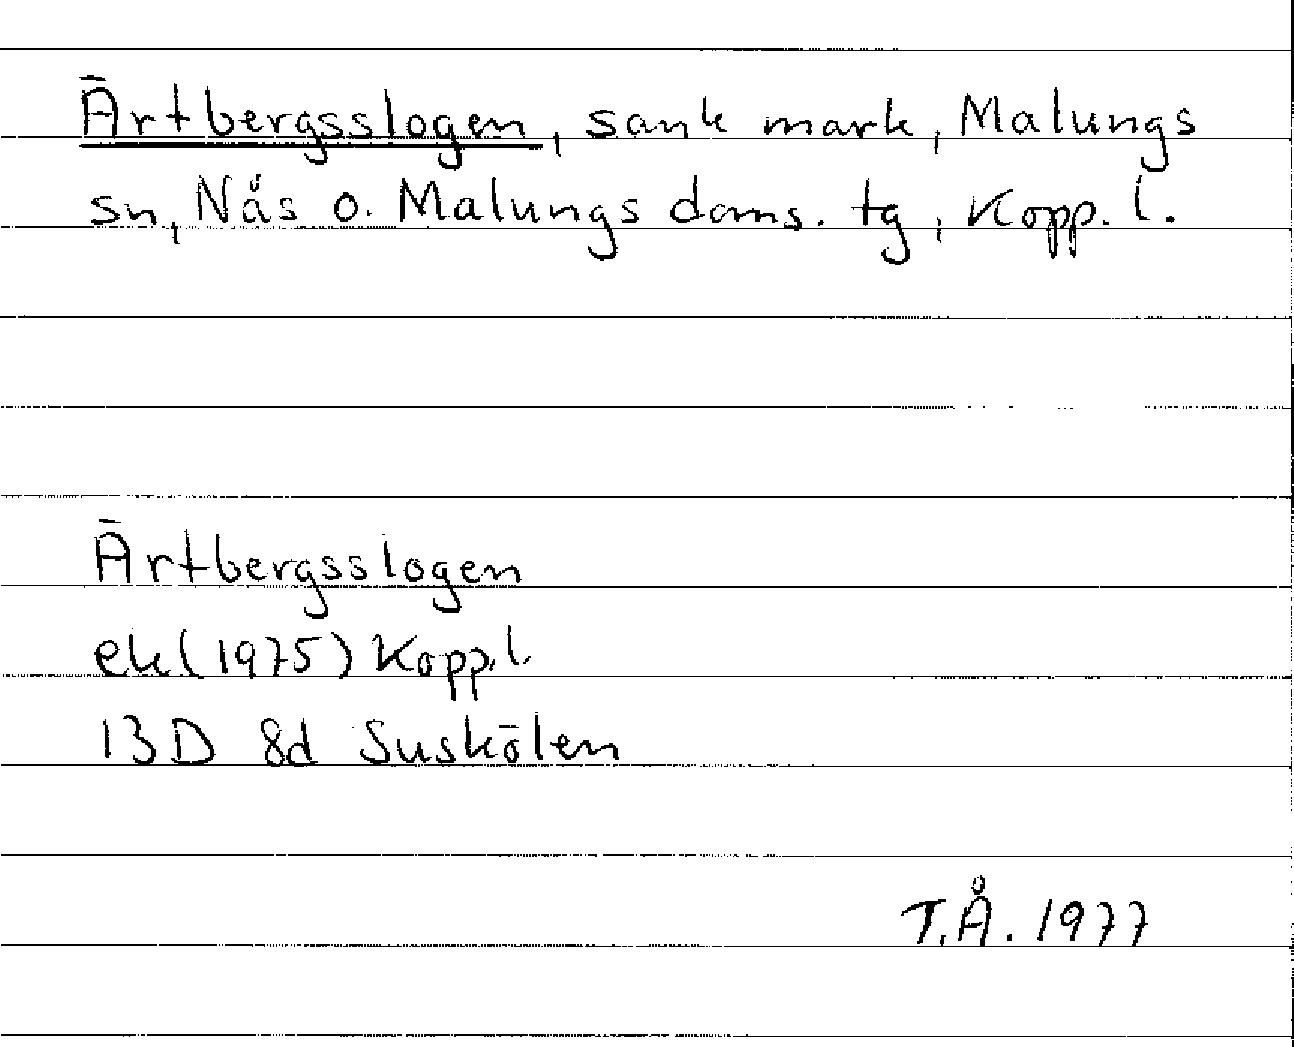 Ärtbergsslogen, sank mark, Malungs
sn, Nås o. Malungs doms. tg, Kopp. l.
Ärtbergsslogen
ek (1975) Kopp.l.
13D 8d Suskölen
T.Å. 1977